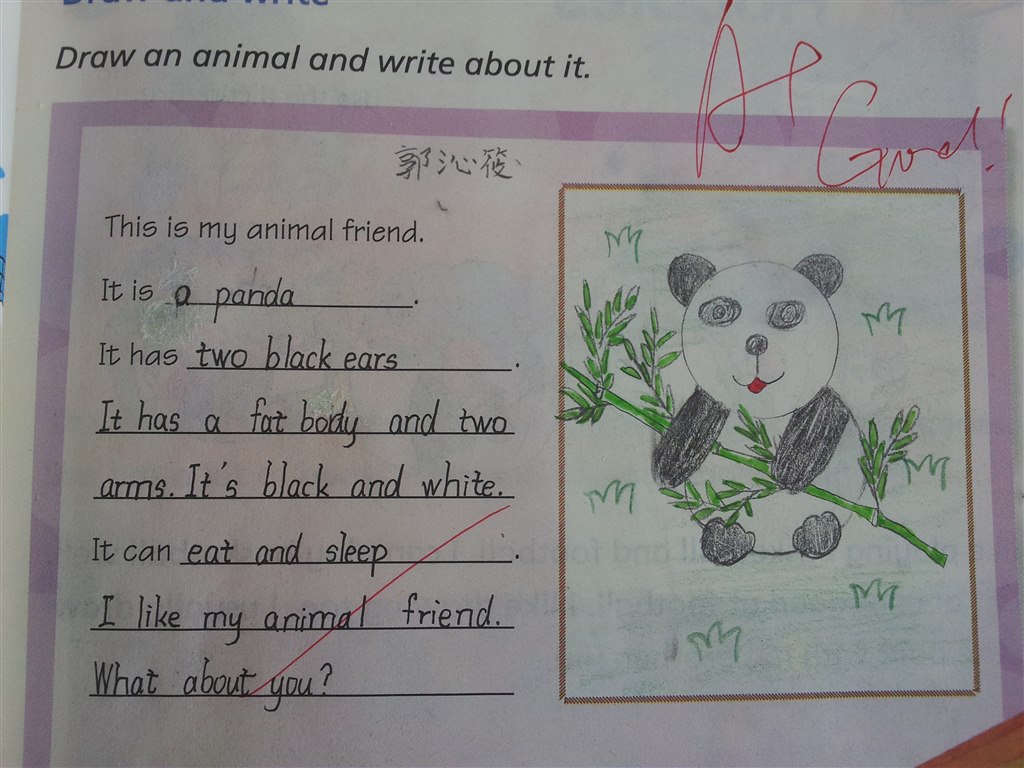 Draw and write
Draw an animal and write about it.
A+
Good!
郭沁筱
This is my animal friend.
It is a panda.
It has two black ears.
It has a fat body and two
arms. It's black and white.
It can eat and sleep.
I like my animal friend.
What about you?